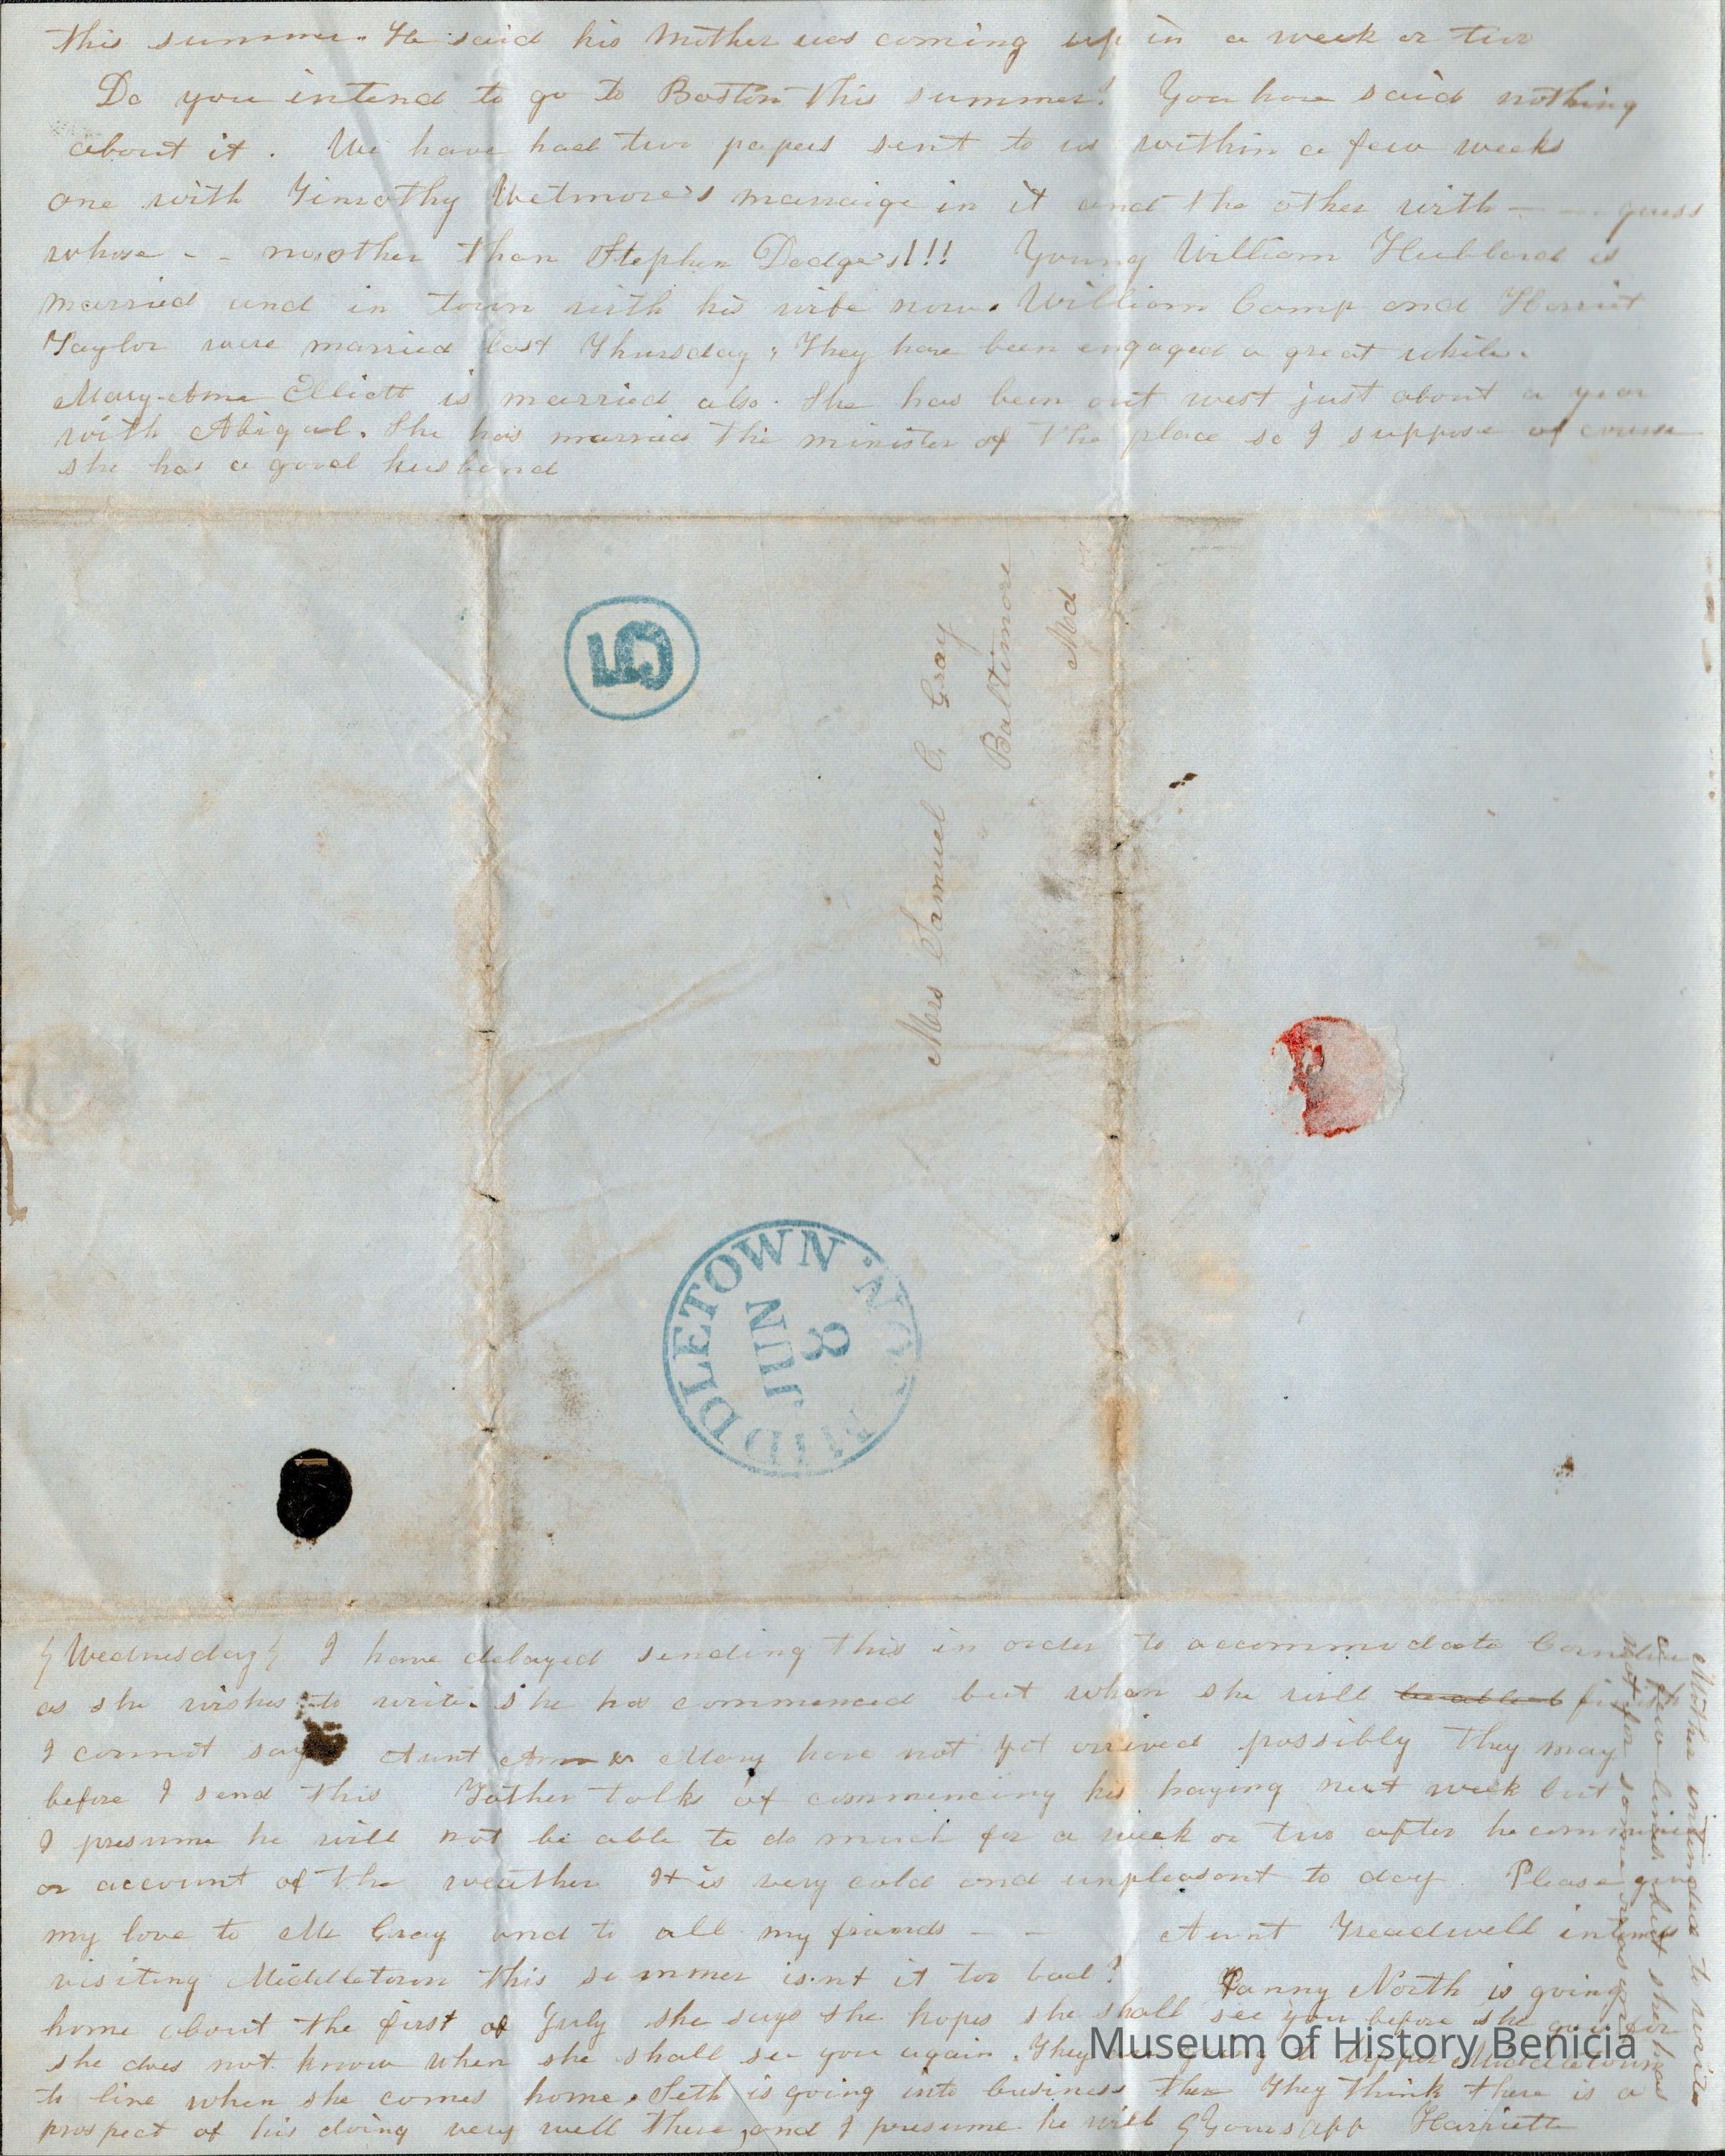 this summer. He said his Mother was coming up in a week or two
Do you intend to go to Boston this summer? You have said nothing
about it. We have had two papers sent to us within a few weeks
one with Timothy Wetmore's marraige in it and the other with — — guess
whose - - no other than Stephen Dodge's!!! Young William Hubbard is
married and in town with his wife now. William Camp and Harriet
Taylor were married last Thursday; They have been engaged a great while.
Mary-Ann Elliott is married also. She has been out west just about a year
with Abigal. She has married the minister of the place so I suppose of course
she has a good husband
5
Mrs Samuel C. Gray
Baltimore
Md
MIDDLETOWN CON.
JUN
8
{Wednesday} I have delayed sending this in order to accommodate Cornelia
as she wishes to write. she has commenced but when she will finish
I cannot say Aunt Ann & Mary have not yet arrived possibly they may
before I send this Father talks of commencing his haying next week but
I presume he will not be able to do much for a week or two after he commences
on account of the weather It is very cold and unpleasant to day. Please give
my love to Mr Gray and to all my friends - - Aunt Treadwell intends
visiting Middletown this summer isn't it too bad? Fanny North is going
home about the first of July she says she hopes she shall see you before she goes for
she does not know when she shall see you again. They are going to upper Middletown
to live when she comes home. Seth is going into business there They think there is a
prospect of his doing very well there, and I presume he will Yours aff Harriette
Mother intended to write
a few lines but she has
not for some reason
Museum of History Benicia